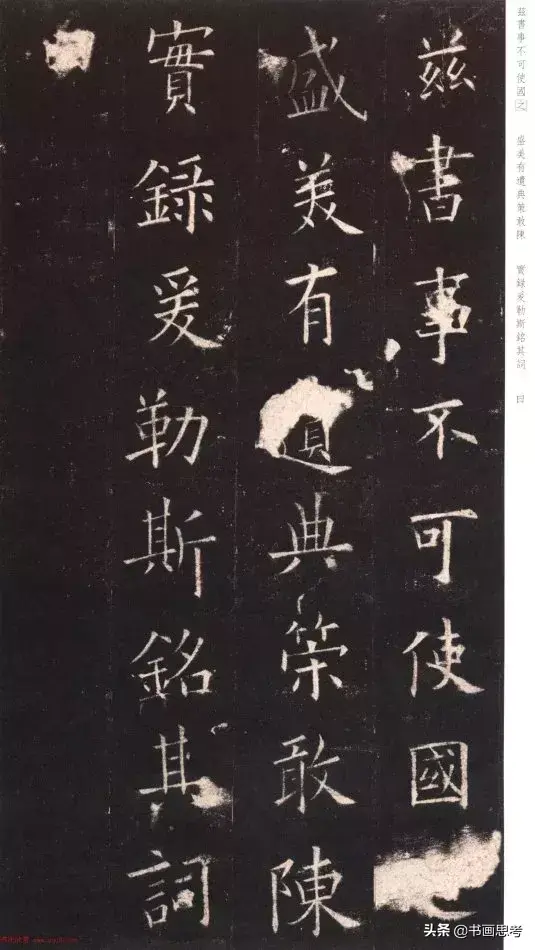 茲書事不可使國[之] 盛美有遺典策敢陳 實録爰勒斯銘其詞 曰
茲書事不可使國
盛美有遺典筞敢陳
實録爰勒斯銘其詞
曰
头条 @书画思考